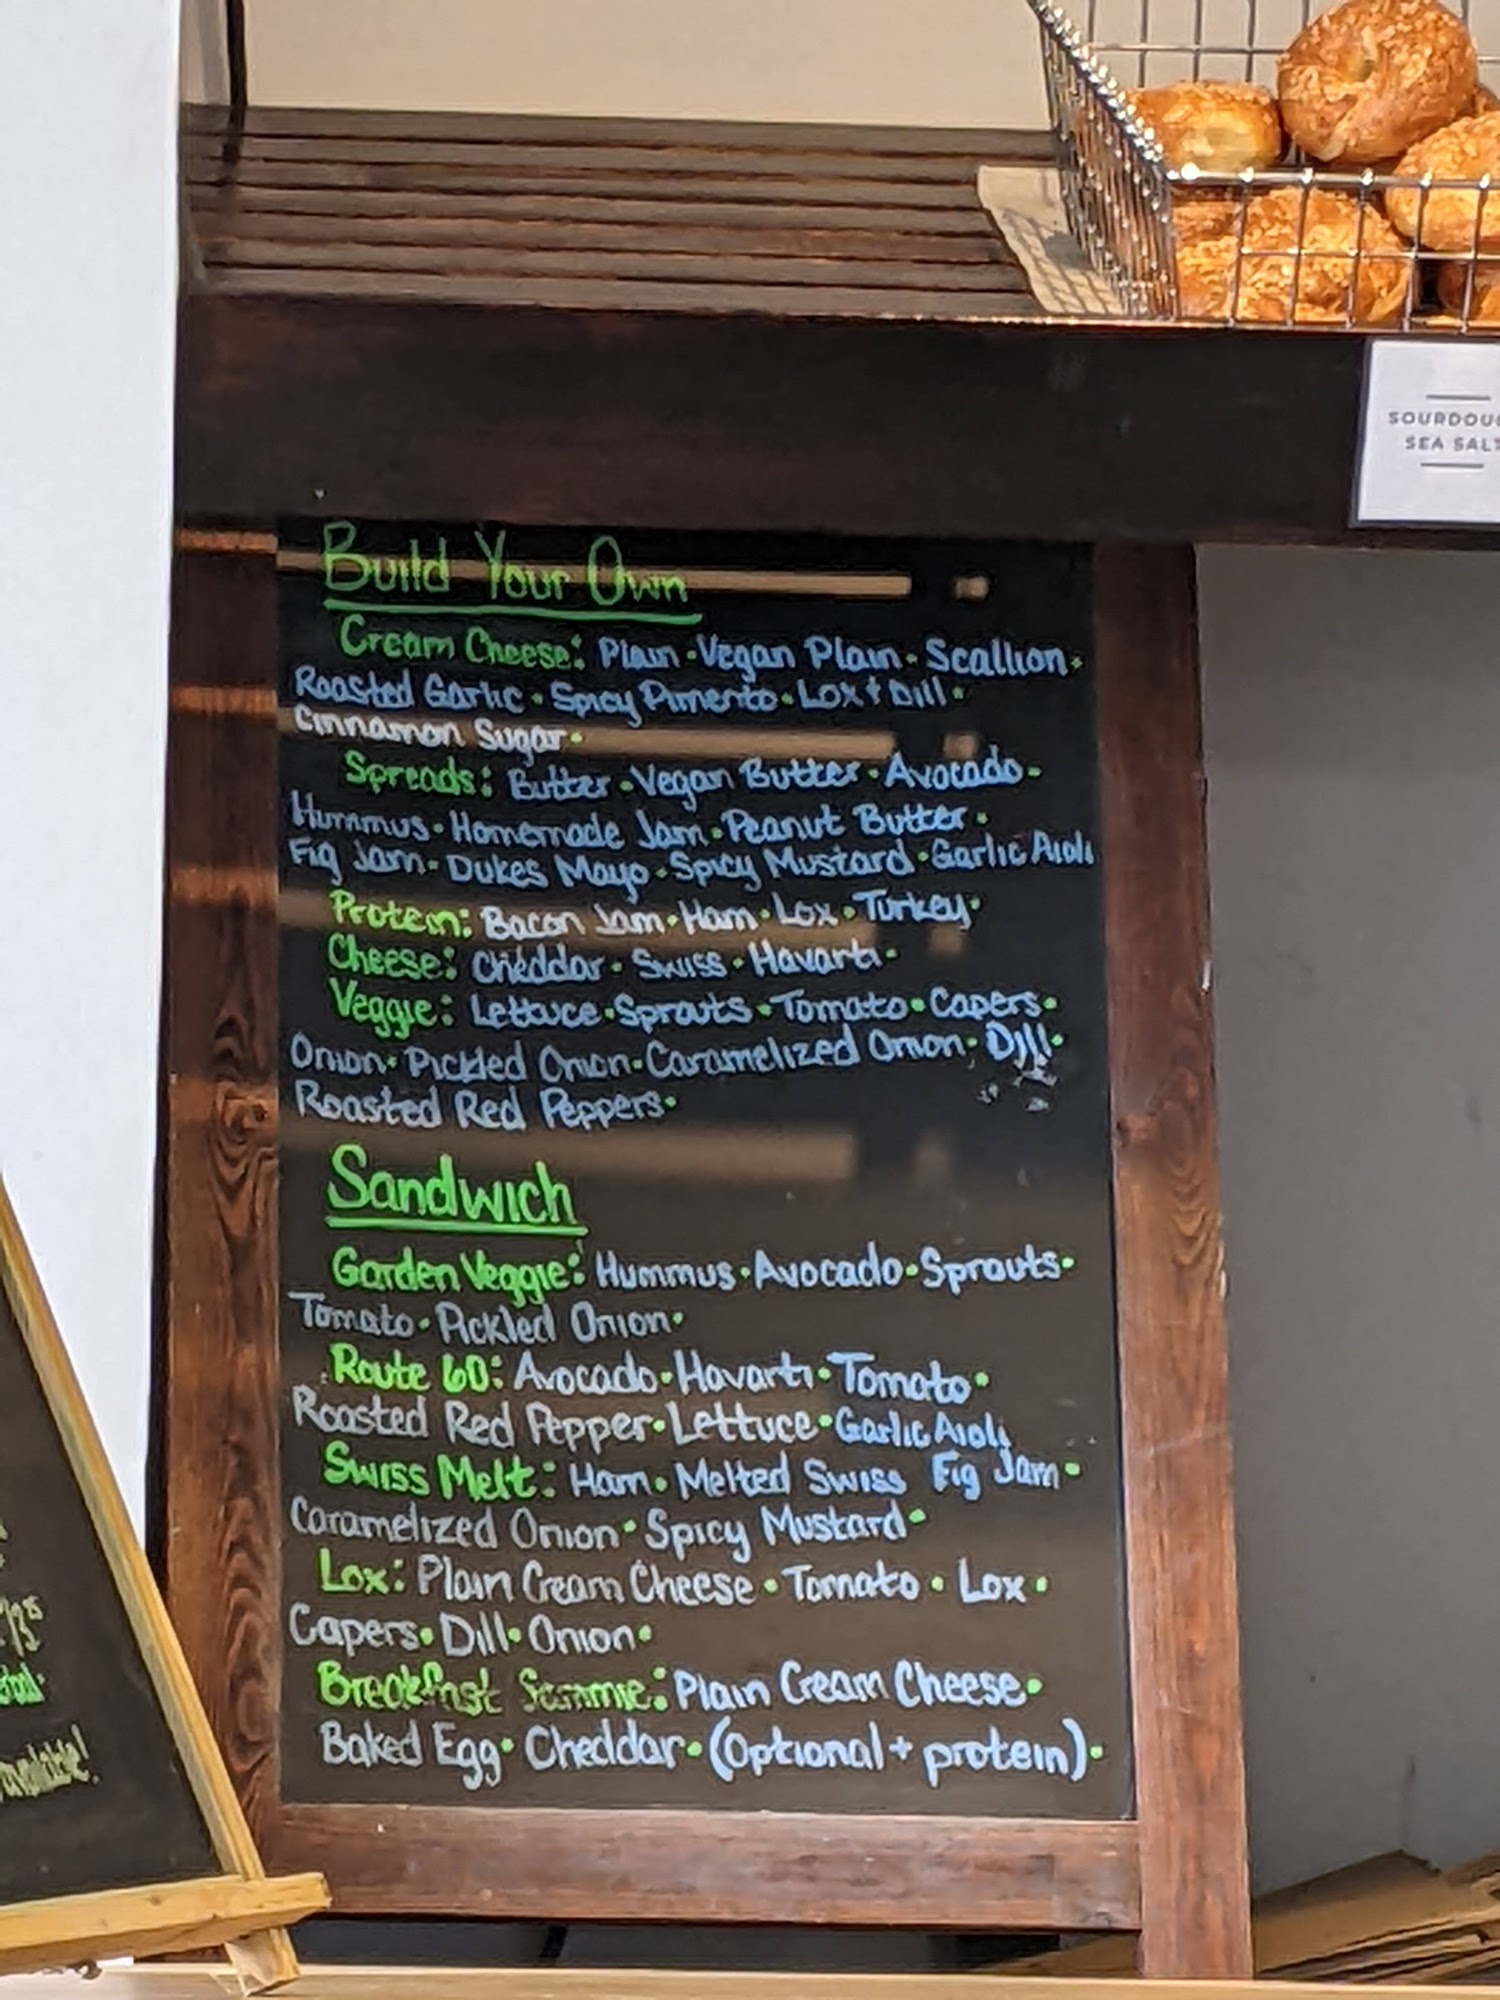 SOURDOU
SEA SALT
Build Your Own
Cream Cheese: Plain • Vegan Plain • Scallion •
Roasted Garlic • Spicy Pimento • Lox + Dill •
Cinnamon Sugar •
Spreads: Butter • Vegan Butter • Avocado •
Hummus • Homemade Jam • Peanut Butter •
Fig Jam • Dukes Mayo • Spicy Mustard • Garlic Aioli
Protein: Bacon Jam • Ham • Lox • Turkey •
Cheese: Cheddar • Swiss • Havarti •
Veggie: Lettuce • Sprouts • Tomato • Capers •
Onion • Pickled Onion • Caramelized Onion • Dill •
Roasted Red Peppers •
Sandwich
Garden Veggie: Hummus • Avocado • Sprouts •
Tomato • Pickled Onion •
Route 60: Avocado • Havarti • Tomato •
Roasted Red Pepper • Lettuce • Garlic Aioli
Swiss Melt: Ham • Melted Swiss Fig Jam •
Caramelized Onion • Spicy Mustard •
Lox: Plain Cream Cheese • Tomato • Lox •
Capers • Dill • Onion •
Breakfast Sammie: Plain Cream Cheese •
Baked Egg • Cheddar • (Optional + protein) •